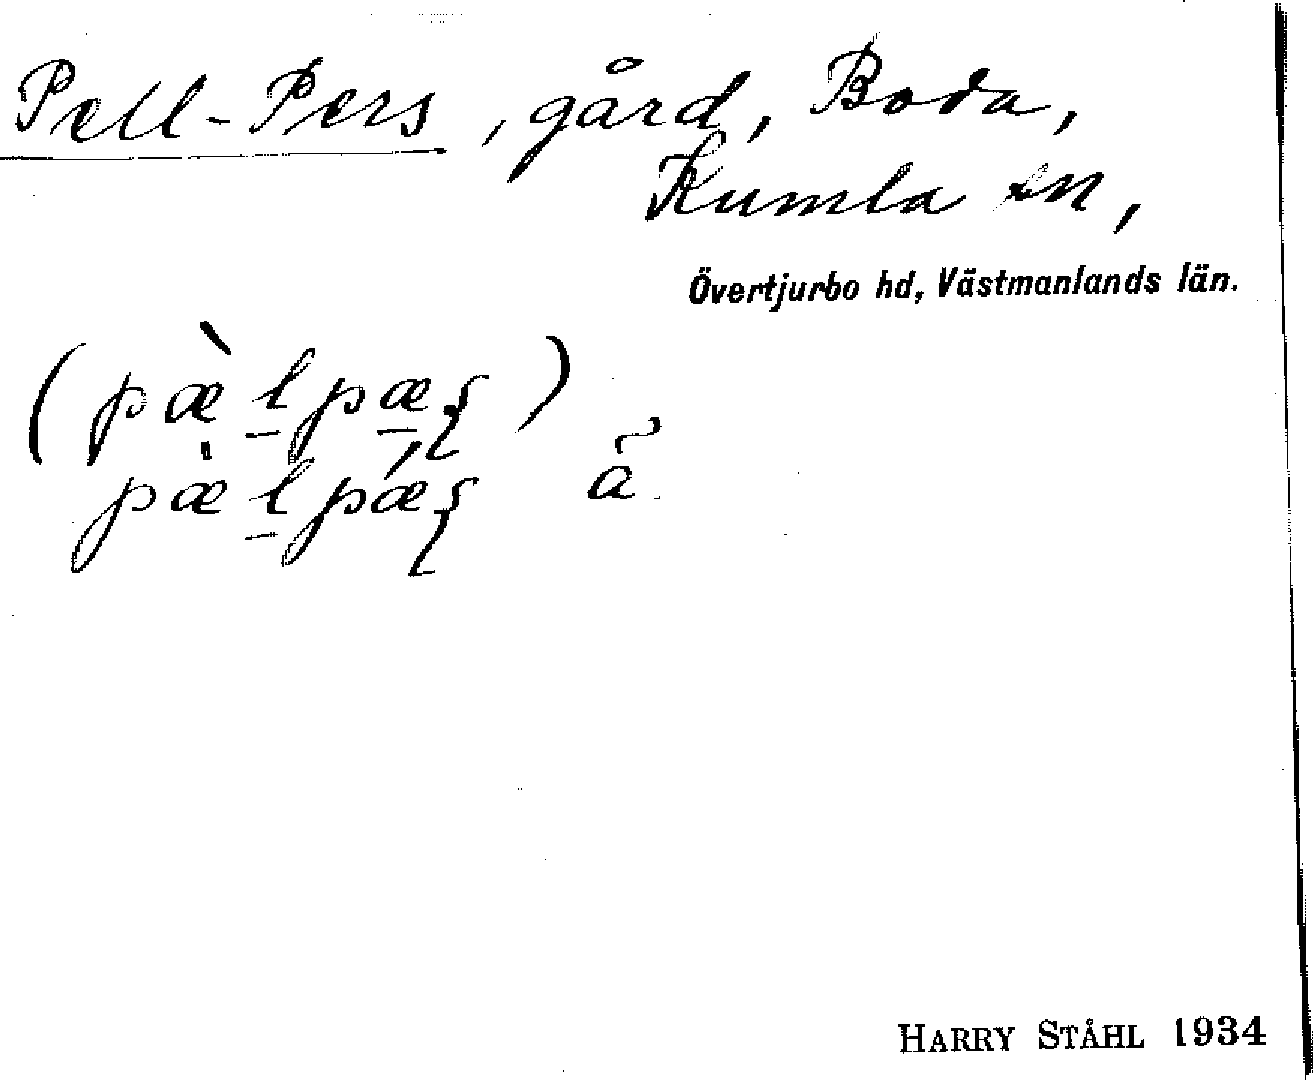 Pell-Pers, gård, Boda,
Kumla sn,
Övertjurbo hd, Västmanlands län.
(pæ̀l̠pæ̠ʂ)
pæl̠pǽʂ ã
HARRY STÅHL 1934